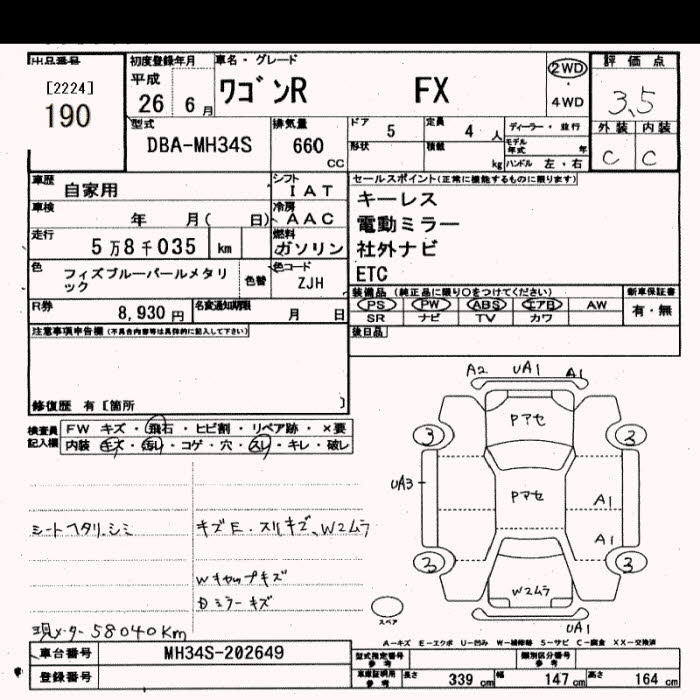 出品番号 初度登録年月 車名・グレード 評価点
[2224] 平成 2WD
190 26 6月 ワゴンR FX 4WD 3.5
型式 排気量 ドア 5 定員 4人 ディーラー・並行 外装 内装
DBA-MH34S 660 CC 形状 積載 kg モデル年式 年 ハンドル 左・右 C C
車歴 自家用 シフト IAT セールスポイント(正常に機能するものに限ります)
車検 年 月( 日) 冷房 AAC キーレス
走行 5万8千035 km 燃料 ガソリン 電動ミラー
色 フィズブルーパールメタリック 色替 色コード ZJH 社外ナビ
ETC
R券 8,930円 名変通知期限 月 日 装備品(純正品に限り○をつけてください) 新車保証書
PS PW ABS エアB AW 有・無
SR ナビ TV カワ
注意事項申告欄(不具合内容等は具体的に記入して下さい) 後日品
修復歴 有[箇所 ]
検査員記入欄 FW キズ・飛石・ヒビ割・リペア跡・×要
内装 キズ・汚レ・コゲ・穴・スレ・キレ・破レ
A2 UA1 A1
Pアセ
3 3
UA3 Pアセ A1
A1
3 3
W2ムラ
UA1
スペア
シートヘタリ.シミ キズE.スリキズ、W2ムラ
Wキャップキズ
ミラーキズ
現メーター58040Km
A-キズ E-エクボ U-凹み W-補修跡 S-サビ C-腐食 XX-交換済
車台番号 MH34S-202649 型式指定番号 参考 類別区分番号 参考
登録番号 車庫証明用 参考 長さ 339cm 幅 147cm 高さ 164cm